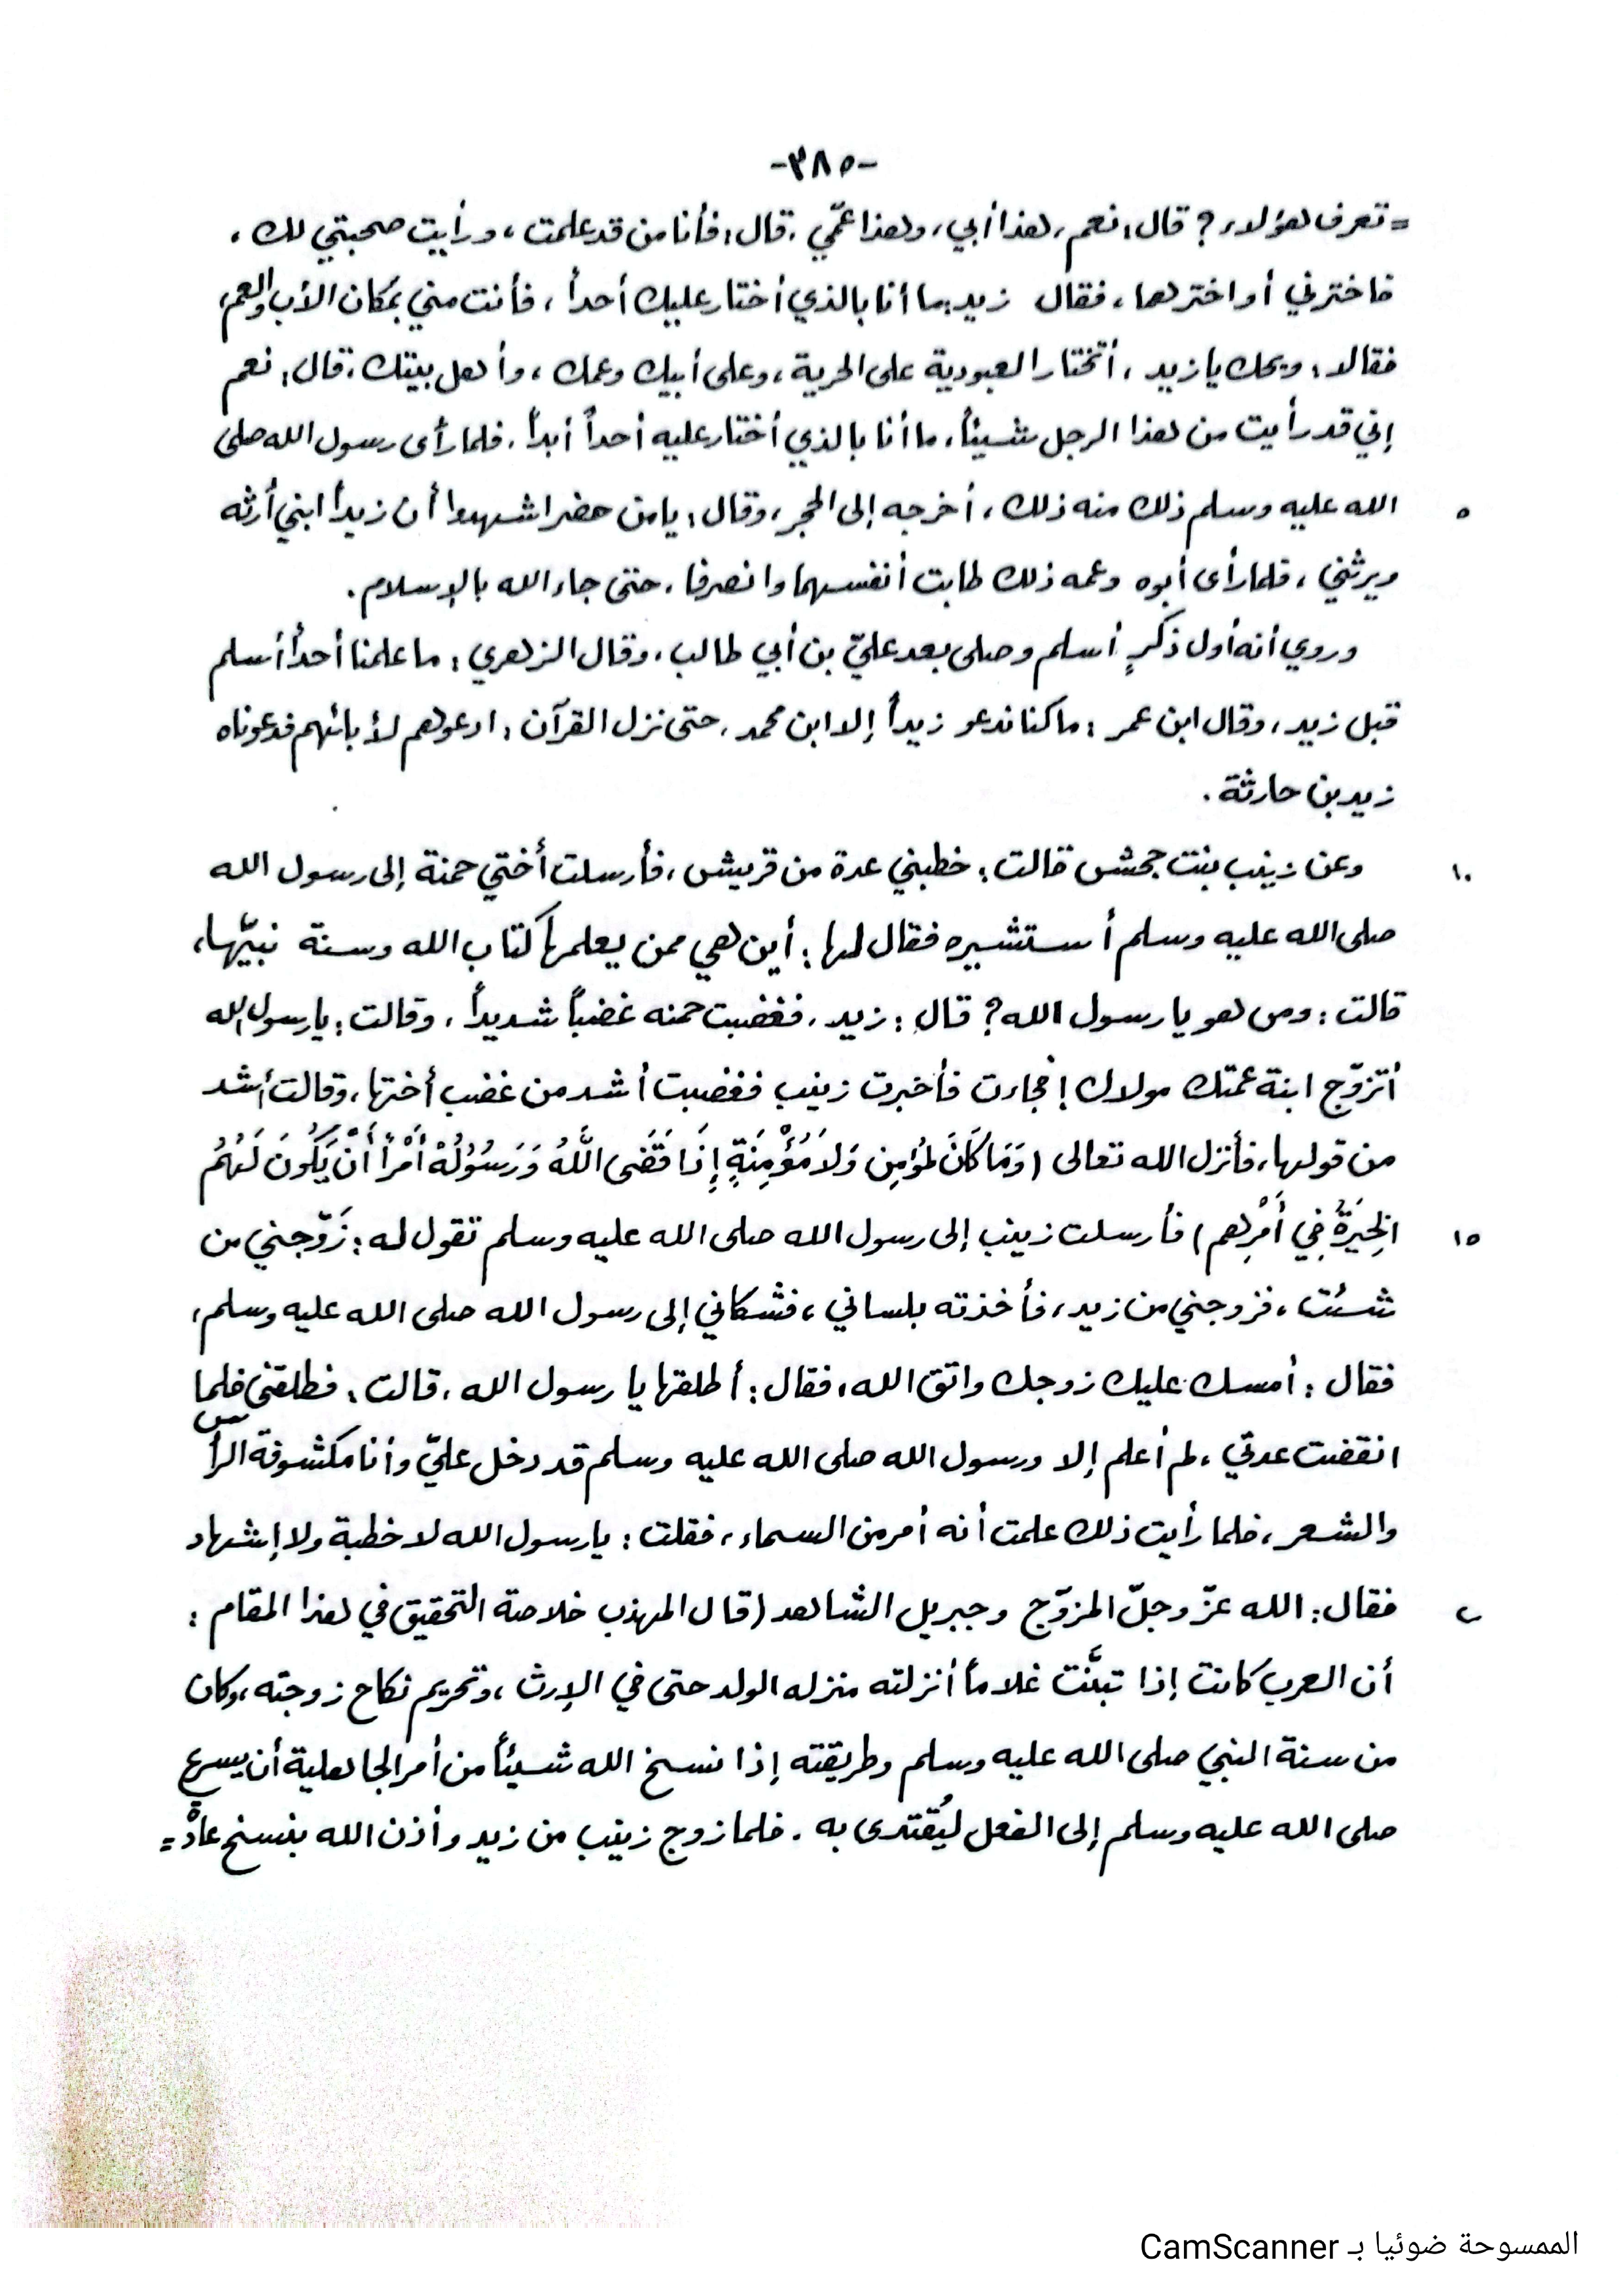 -٣٨٥-
= تعرف هؤلاء؟ قال: نعم، هذا أبي، وهذا عمّي. قال: فأنا من قد علمت، ورأيت صحبتي لك،
فاخترني أو اخترهما، فقال زيد: ما أنا بالذي أختار عليك أحداً، فأنت مني بمكان الأب والعم،
فقالا: ويحك يا زيد، أتختار العبودية على الحرية، وعلى أبيك وعمك، وأهل بيتك. قال: نعم
إني قد رأيت من هذا الرجل شيئاً، ما أنا بالذي أختار عليه أحداً أبداً. فلما رأى رسول الله صلى
٥ الله عليه وسلم ذلك منه ذلك، أخرجه إلى الحجر، وقال: يا من حضر اشهدوا أن زيداً ابني أرثه
ويرثني، فلما رأى أبوه وعمه ذلك طابت أنفسهما وانصرفا. حتى جاء الله بالإسلام.
وروي أنه أول ذكرٍ أسلم وصلى بعد عليّ بن أبي طالب. وقال الزهري: ما علمنا أحداً أسلم
قبل زيد، وقال ابن عمر: ما كنا ندعو زيداً إلا ابن محمد، حتى نزل القرآن: ادعوهم لأبائهم فدعوناه
زيد بن حارثة.
١٠ وعن زينب بنت جحش قالت: خطبني عدة من قريش، فأرسلت أختي حمنة إلى رسول الله
صلى الله عليه وسلم أستشيره فقال لها: أين هي ممن يعلمها كتاب الله وسنة نبيّها،
قالت: ومن هو يا رسول الله؟ قال: زيد. فغضبت حمنه غضباً شديداً، وقالت: يا رسول الله
أتزوّج ابنة عمتك مولاك! فجاءت فأخبرت زينب فغضبت أشد من غضب أختها، وقالت أشد
من قولها، فأنزل الله تعالى (وَمَا كَانَ لمُؤمِنٍ وَلاَ مُؤْمِنَةٍ إِذَا قَضَى اللَّهُ وَرَسُولُهُ أَمْراً أَنْ يَكُونَ لَهُمُ
١٥ الخِيَرَةُ فِي أَمْرِهم) فأرسلت زينب إلى رسول الله صلى الله عليه وسلم تقول له: زَوّجني من
شئت، فزوجني من زيد، فأخذته بلساني، فشكاني إلى رسول الله صلى الله عليه وسلم،
فقال: أمسك عليك زوجك واتق الله، فقال: أطلقها يا رسول الله. قالت: فطلقني فلما
انقضت عدتي، لم أعلم إلا ورسول الله صلى الله عليه وسلم قد دخل عليّ وأنا مكشوفة الرأس
والشعر، فلما رأيت ذلك علمت أنه أمر من السماء، فقلت: يا رسول الله لا خطبة ولا إشهاد
فقال: الله عزّ وجلّ المزوّج وجبريل الشاهد (قال المهذب خلاصة التحقيق في هذا المقام:
أن العرب كانت إذا تبنَّت غلاماً أنزلته منزله الولد حتى في الإرث، وتحريم نكاح زوجته، وكان
من سنة النبي صلى الله عليه وسلم وطريقته إذا نسخ الله شيئاً من أمر الجاهلية أن يسرع
صلى الله عليه وسلم إلى الفعل ليُقتدى به. فلما زوج زينب من زيد وأذن الله بنسخ عادة =
الممسوحة ضوئيا بـ CamScanner